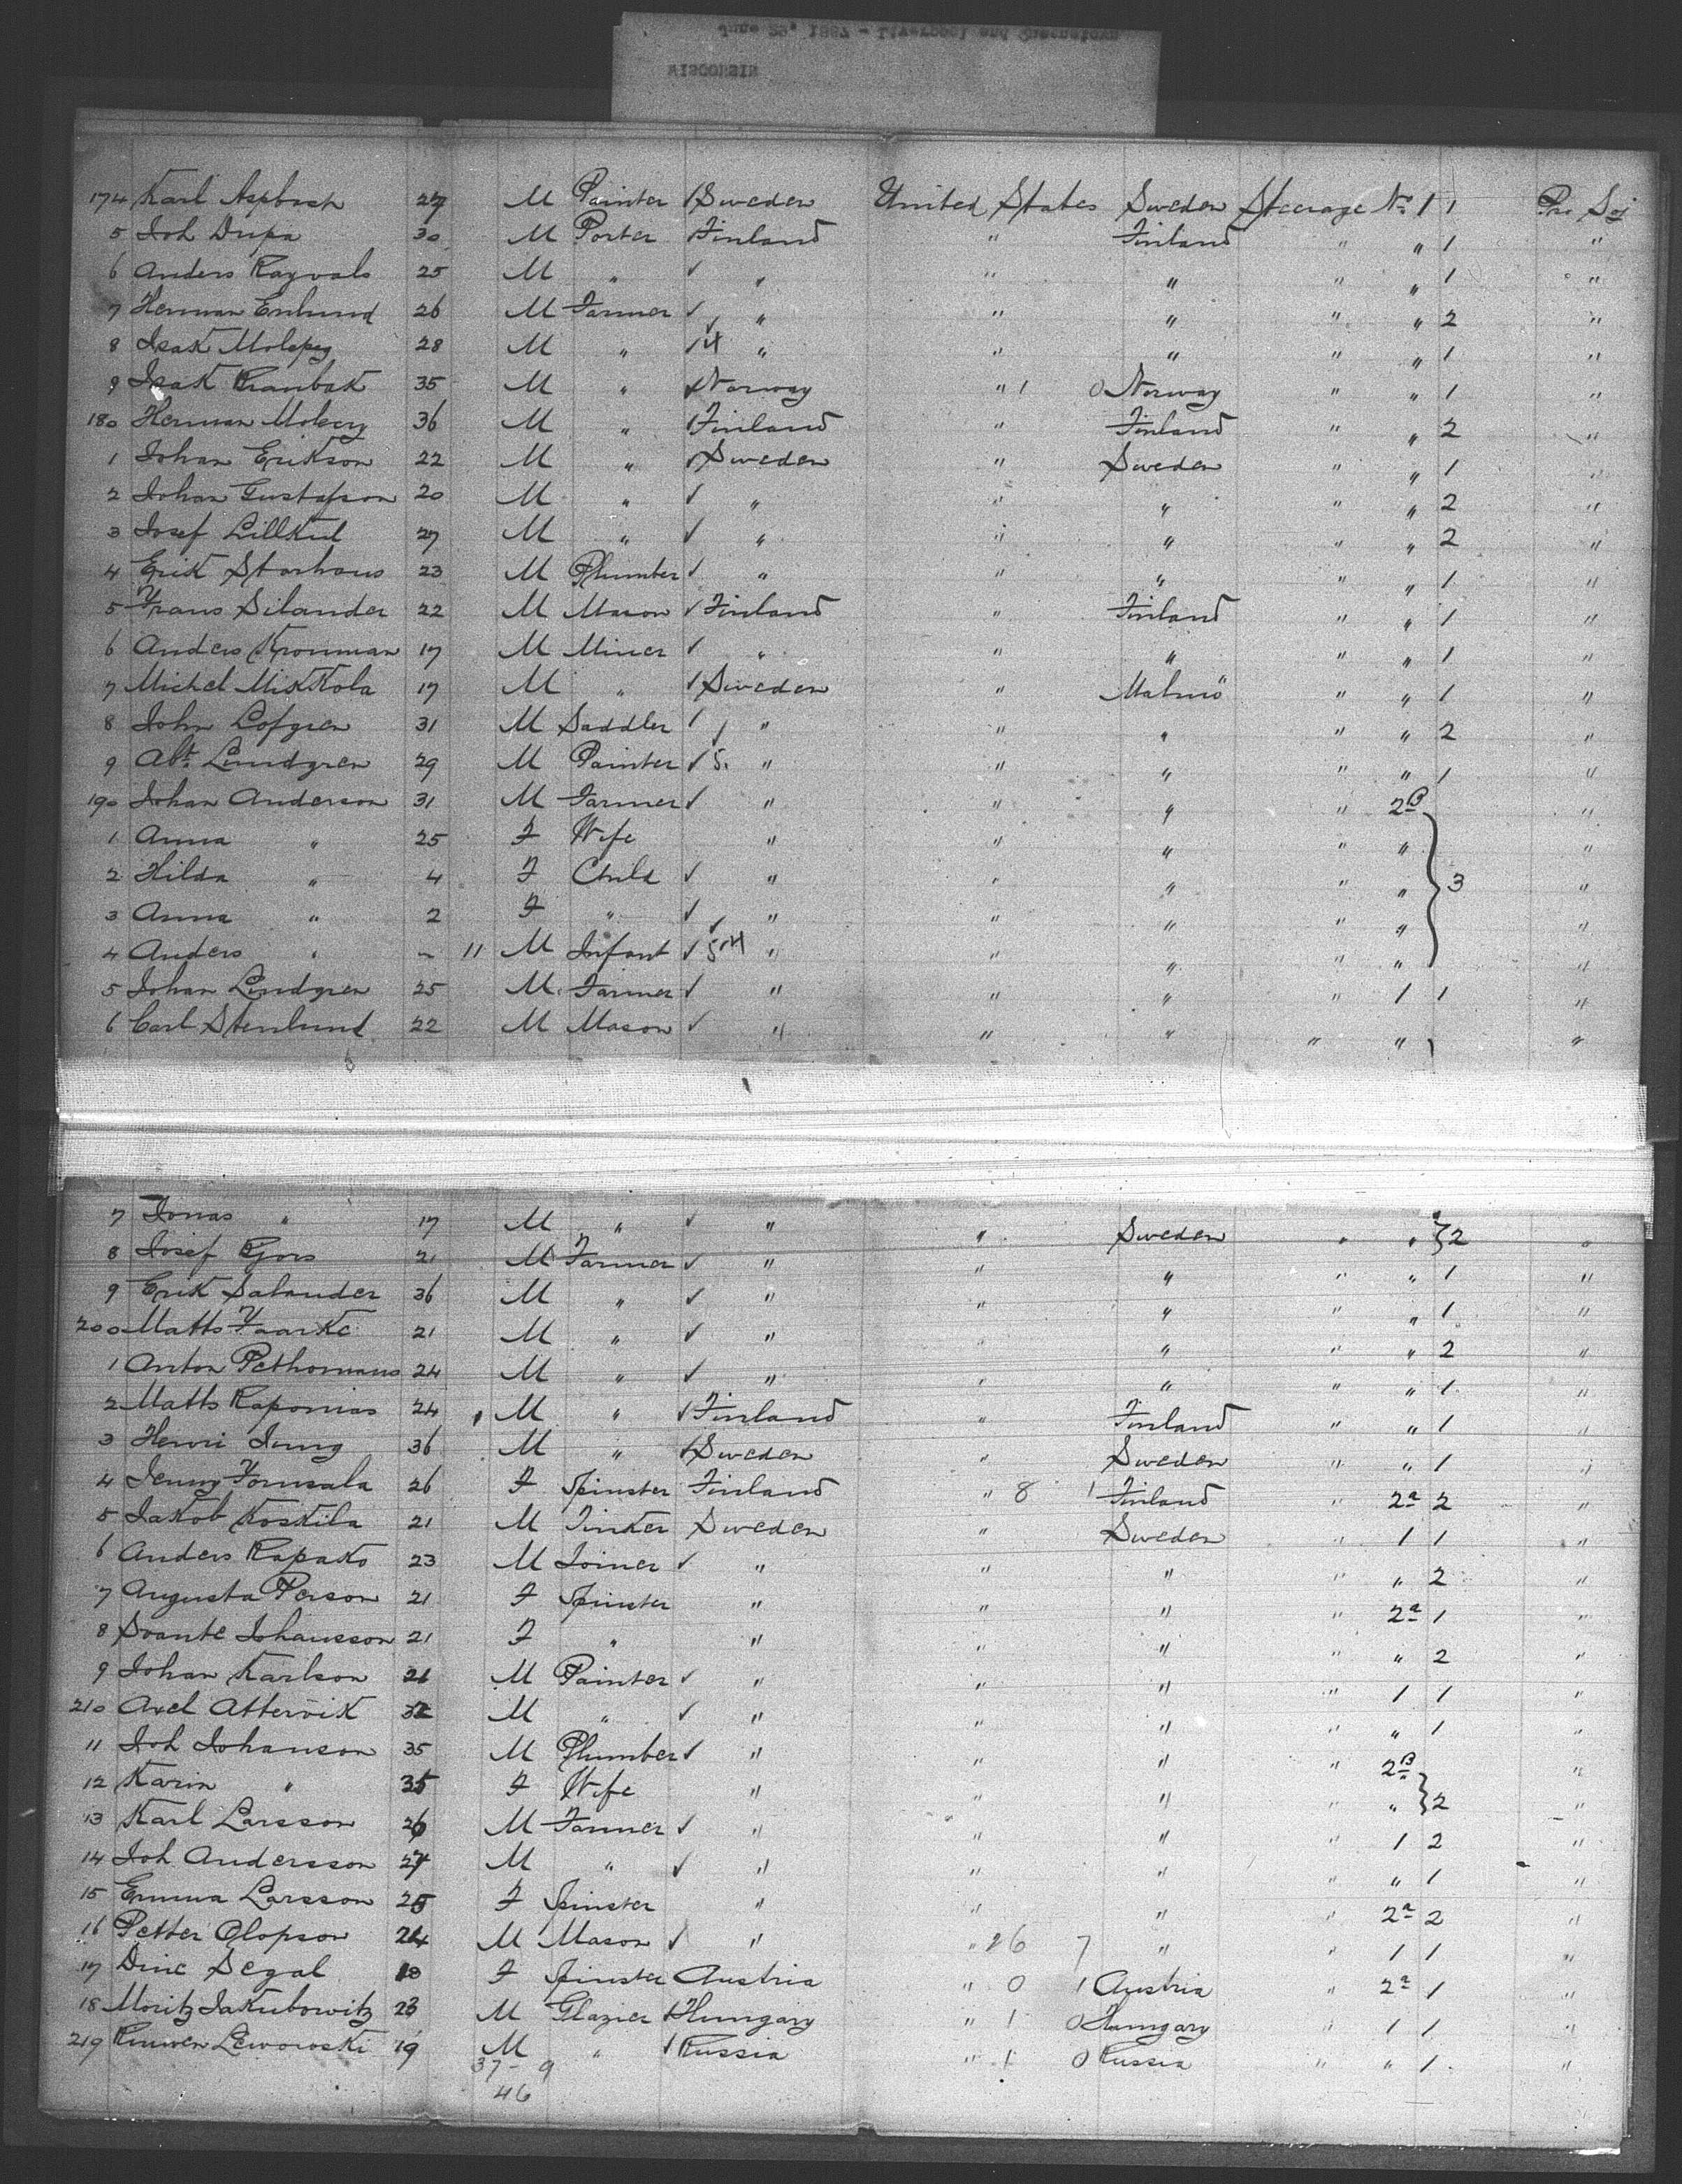 June 29, 1887 - Liverpool and Queenstown
WISCONSIN
174 Karl 27 M Painter Sweden United States Sweden Steerage No 1 1 Pro Soj
5 Joh Drupa 30 M Porter Finland " Finland " " 1 "
6 Anders 25 M " " " " " " 1 "
7 Herman Enlund 26 M Farmer " " " " " 2 "
8 Isak 28 M " 4 " " " " " 1 "
9 Isak 35 M " Norway " 1 0 Norway " " 1 "
180 Herman Moberg 36 M " Finland " Finland " " 2 "
1 Johan Erikson 22 M " Sweden " Sweden " " 1 "
2 Johan Gustafson 20 M " " " " " " 2 "
3 Josef 27 M " " " " " " 2 "
4 Erik 23 M Plumber " " " " " 1 "
5 Frans Silander 22 M Mason Finland " Finland " " 1 "
6 Anders Kronman 17 M Miner " " " " " 1 "
7 Michel Mikkola 17 M " Sweden " Malmö " " 1 "
8 John Lofgren 31 M Saddler " " " " " 2 "
9 Abt Lundgren 29 M Painter 5 " " " " " 1 "
190 Johan Anderson 31 M Farmer " " " " 2B "
1 Anna " 25 F Wife " " " " " "
2 Hilda " 4 F Child " " " " " 3 "
3 Anna " 2 F " " " " " " "
4 Anders " - 11 M Infant " " " " " "
5 Johan Lindgren 25 M Farmer " " " " 1 1 "
6 Carl Stenlund 22 M Mason " " " " " "
7 Jonas " 17 M " " " Sweden " " 2 "
8 Josef 21 M Farmer " " " " " 1 "
9 Erik Salander 36 M " " " " " " 1 "
200 Matts 21 M " " " " " " 2 "
1 Anton 24 M " " " " " " 1 "
2 Matts 24 M " Finland " Finland " " 1 "
3 Henri 36 M " Sweden " Sweden " " 1 "
4 Jenny 26 F Spinster Finland " 8 1 Finland " 2a 2 "
5 Jakob Koskila 21 M Tinker Sweden " Sweden " 1 1 "
6 Anders Rapako 23 M Joiner " " " " " 2 "
7 Augusta Person 21 F Spinster " " " " 2a 1 "
8 Svante Johansson 21 F " " " " " " 2 "
9 Johan Karlson 21 M Painter " " " " 1 1 "
210 Axel Attervik 32 M " " " " " " 1 "
11 Joh Johanson 35 M Plumber " " " " 2B "
12 Karin " 35 F Wife " " " " 2 "
13 Karl Larsson 26 M Farmer " " " " 1 2 "
14 Joh Andersson 27 M " " " " " " 1 "
15 Emma Larsson 25 F Spinster " " " " 2a 2 "
16 Petter Olopson 24 M Mason " " 26 7 " " 1 1 "
17 Dine Segal 18 F Spinster Austria " 0 1 Austria " 2a 1 "
18 Moritz Jakubowitz 23 M Glazier Hungary " 1 0 Hungary " 1 1 "
219 Lewowski 19 M " Russia " 1 0 Russia " " 1 "
37 - 9
46